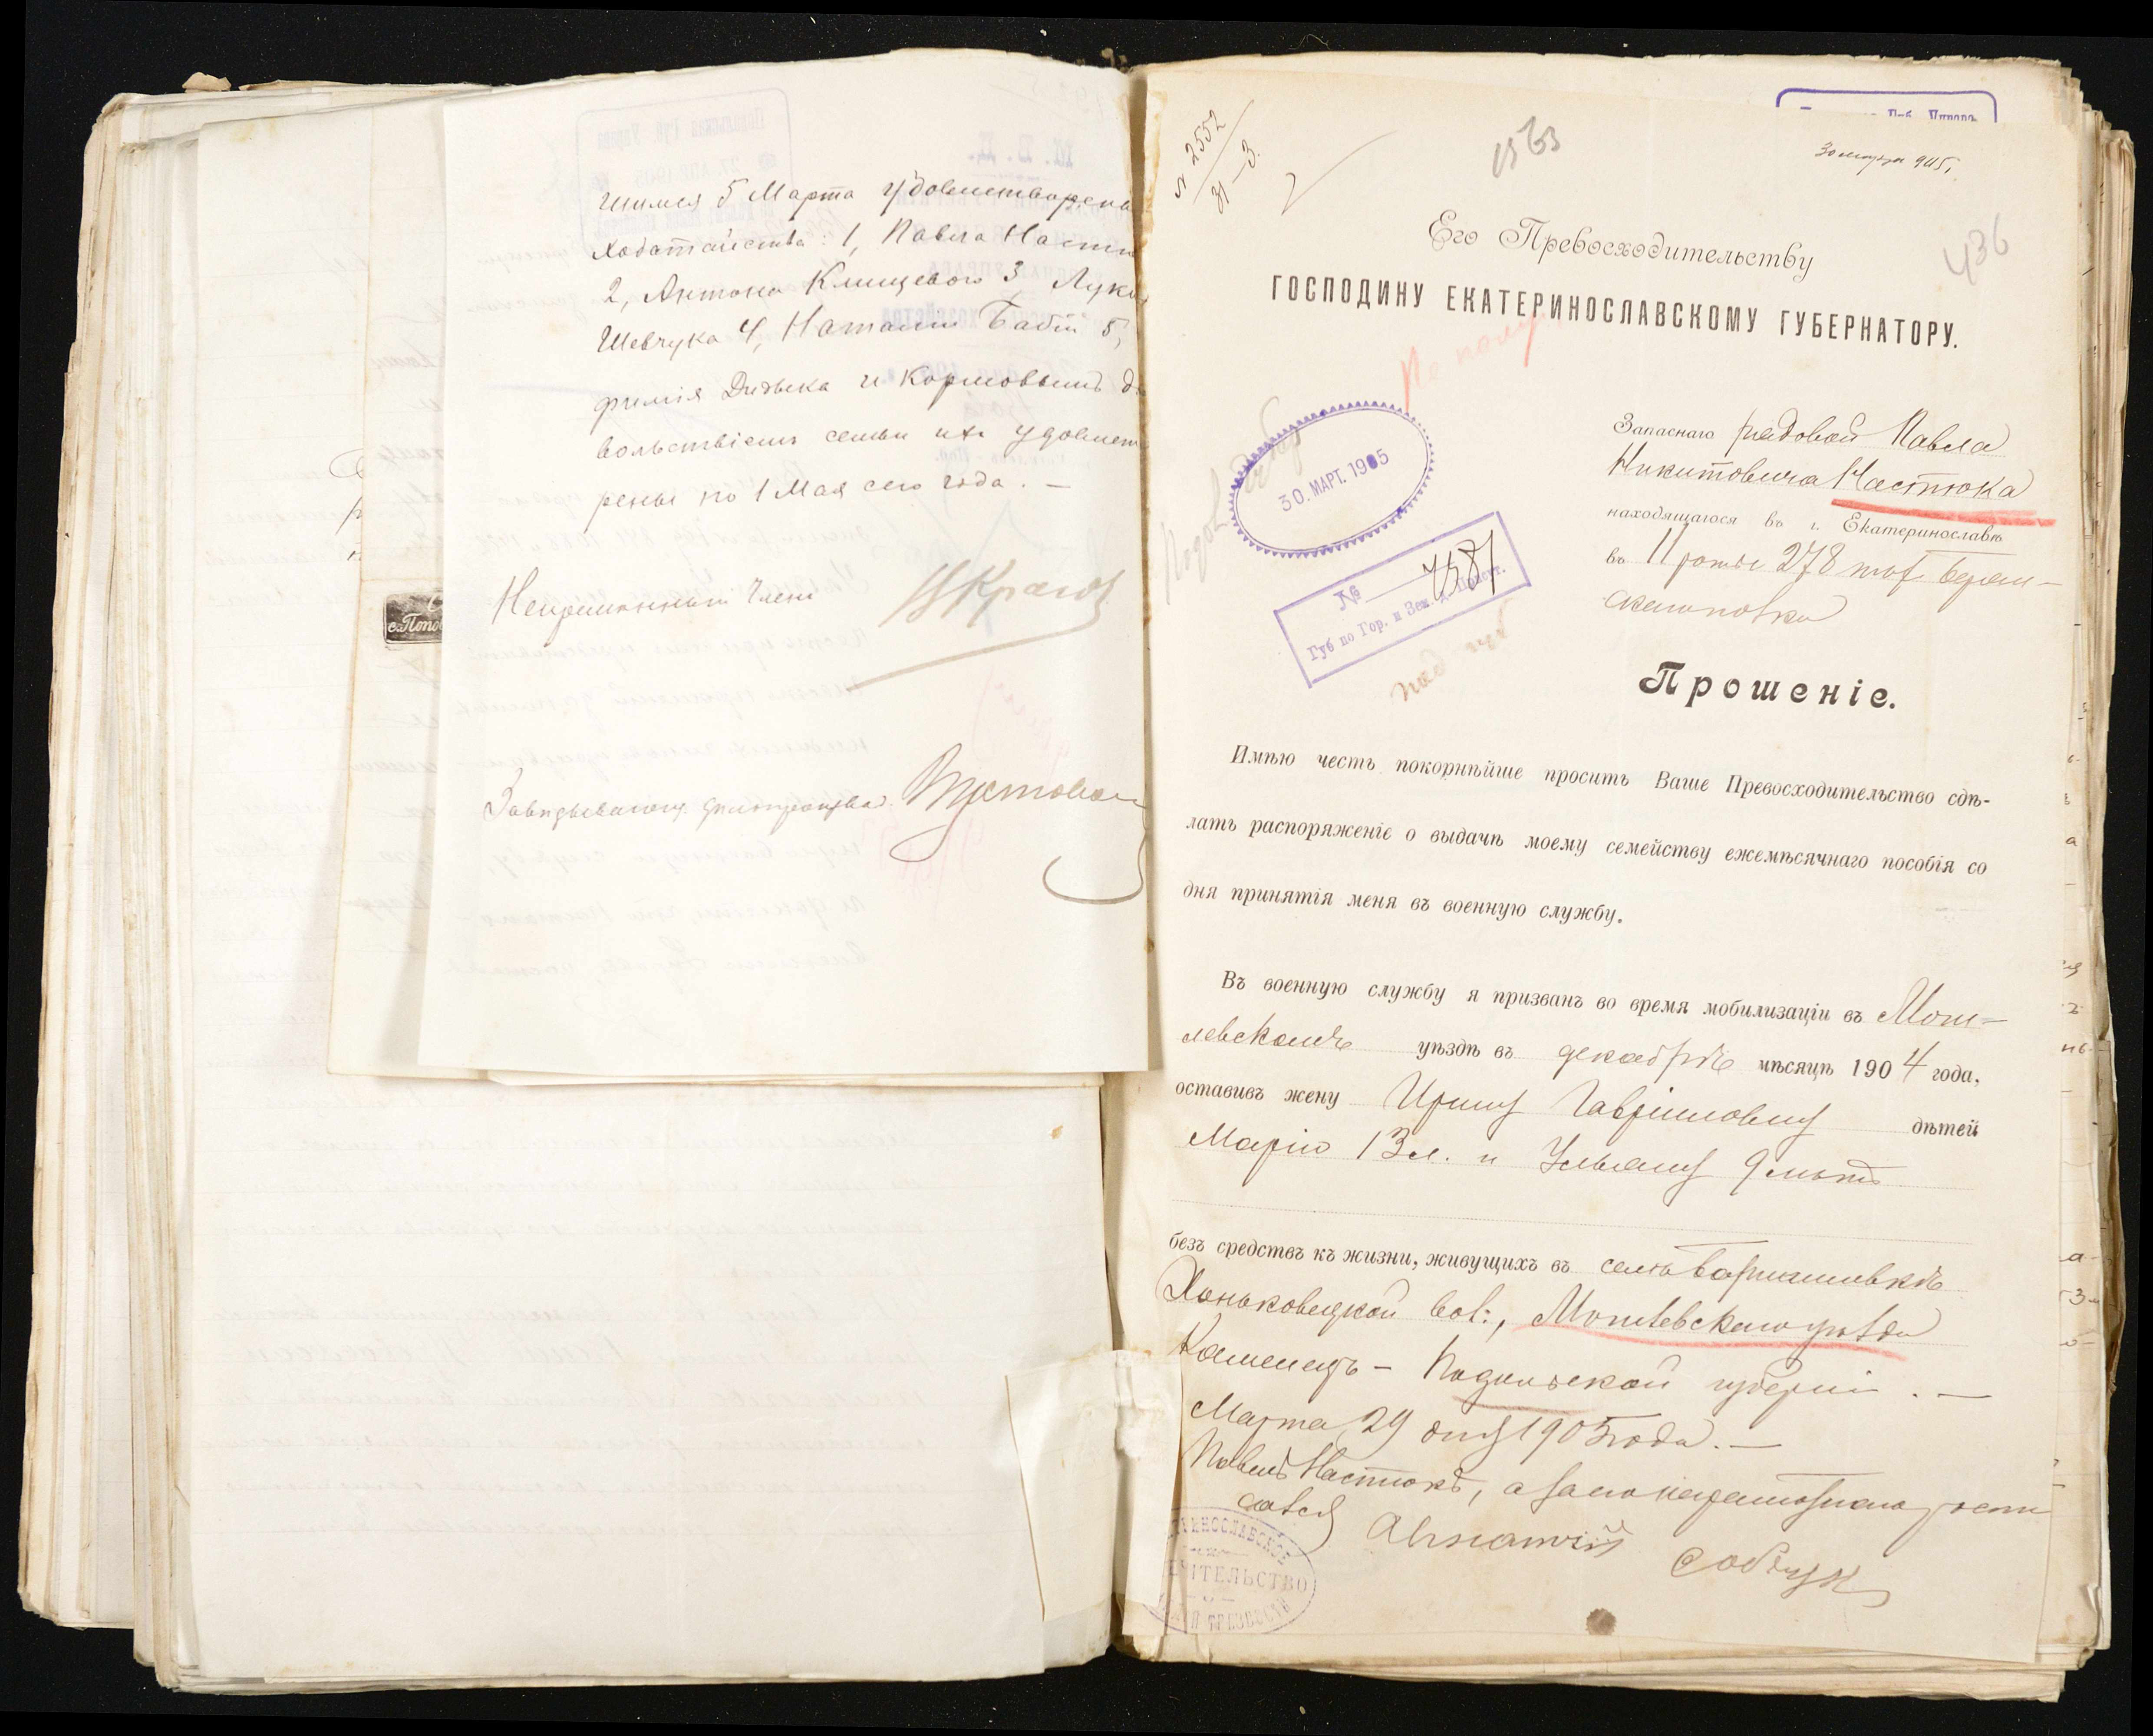 шимся 5 Марта удовлетворены
ходатайства: 1, Павла Настю
2, Антона Клищевого 3, Луки
Шевчука 4, Наталии Бабій 5,
фимія Дидыка и кормовымъ до
вольствіемъ семьи ихъ удовлетв
рены по 1 Мая сего года. —
Непремѣнный Членъ
Завѣдывающ. дѣлопроизвод.
с. Попо
№ 2552
31—3.
30 марта 905 г.
436
Его Превосходительству
ГОСПОДИНУ ЕКАТЕРИНОСЛАВСКОМУ ГУБЕРНАТОРУ.
30. МАРТ. 1905
№ 7381
Губ по Гор. и Зем. д. Присут.
Запаснаго рядовой Павла
Никитовича Настюка
находящагося въ г. Екатеринославѣ
въ 11 роты 278 пѣх.
Прошеніе.
Имѣю честь покорнѣйше просить Ваше Превосходительство сдѣ-
лать распоряженіе о выдачѣ моему семейству ежемѣсячнаго пособія со
дня принятія меня въ военную службу.
Въ военную службу я призванъ во время мобилизаціи въ Моги-
левскомъ уѣздѣ въ декабрѣ мѣсяцѣ 1904 года,
оставивъ жену Ирину Гавріиловну дѣтей
Марію 13 л. и Ульяну 9 лѣтъ
безъ средствъ къ жизни, живущихъ въ селѣ
Хоньковецкой вол:, Могилевскаго уѣзда
Каменецъ-Подольской губерніи. —
Марта 29 дня 1905 года. —
Павелъ Настюкъ, а за его неграмотнаго росписался